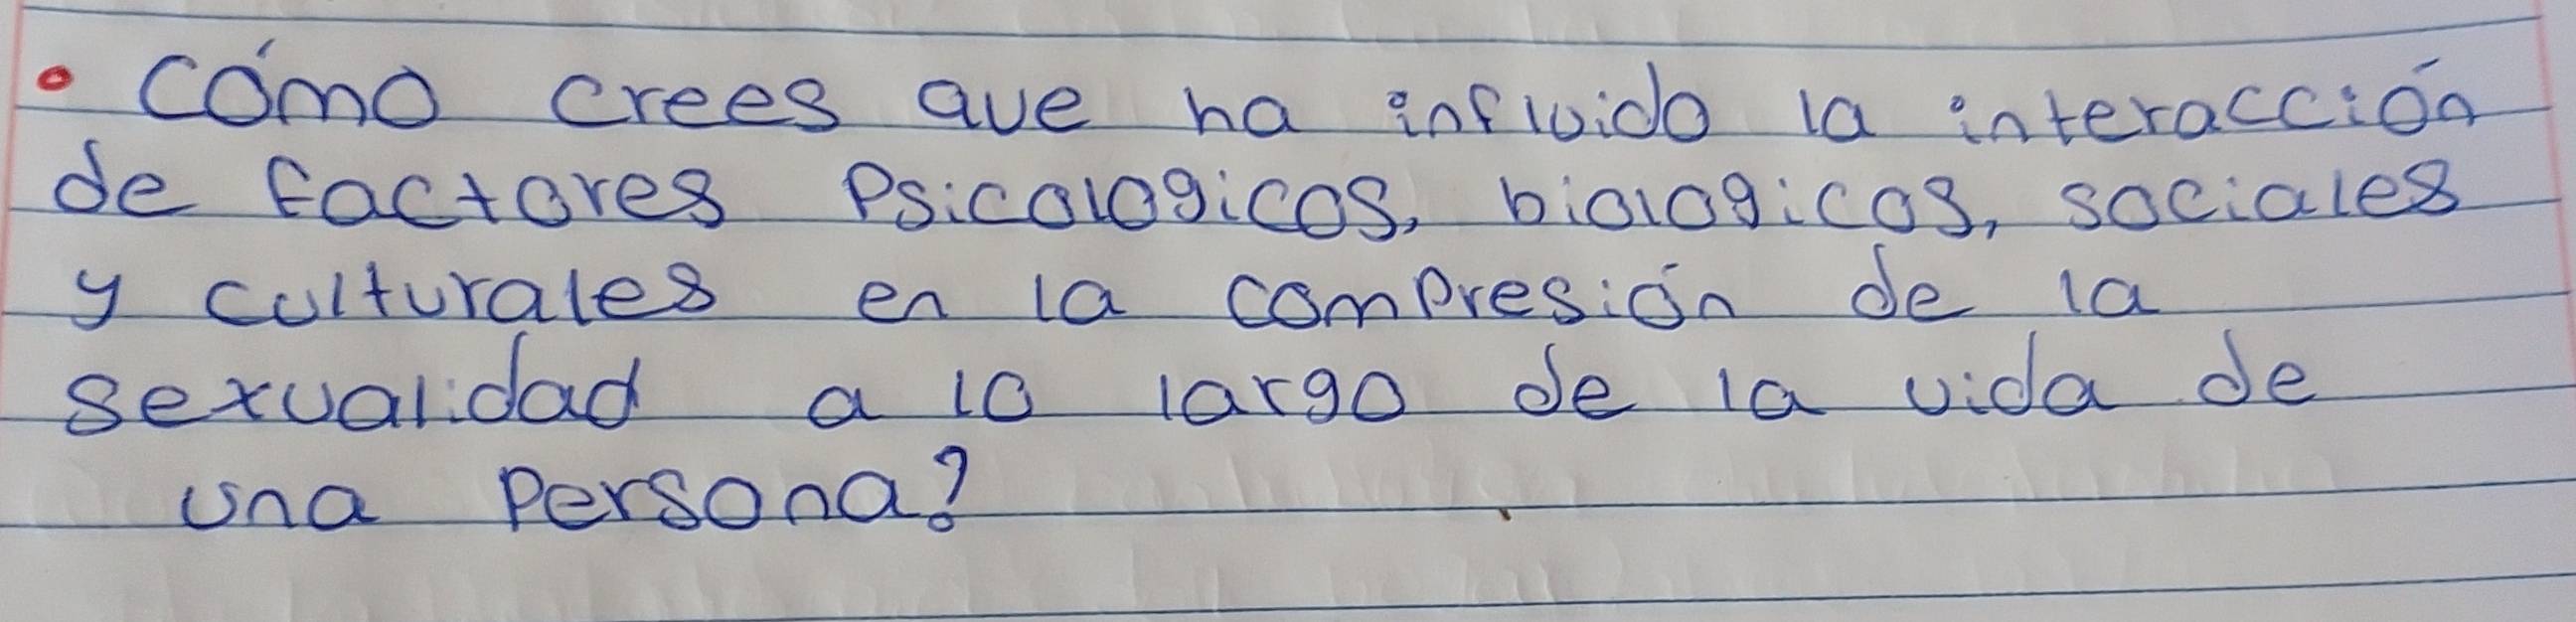 • Cómo crees que ha influido la interacción
de factores Psicologicos, biologicos, sociales
y culturales en la compresión de la
sexualidad a lo largo de la vida de
una persona?